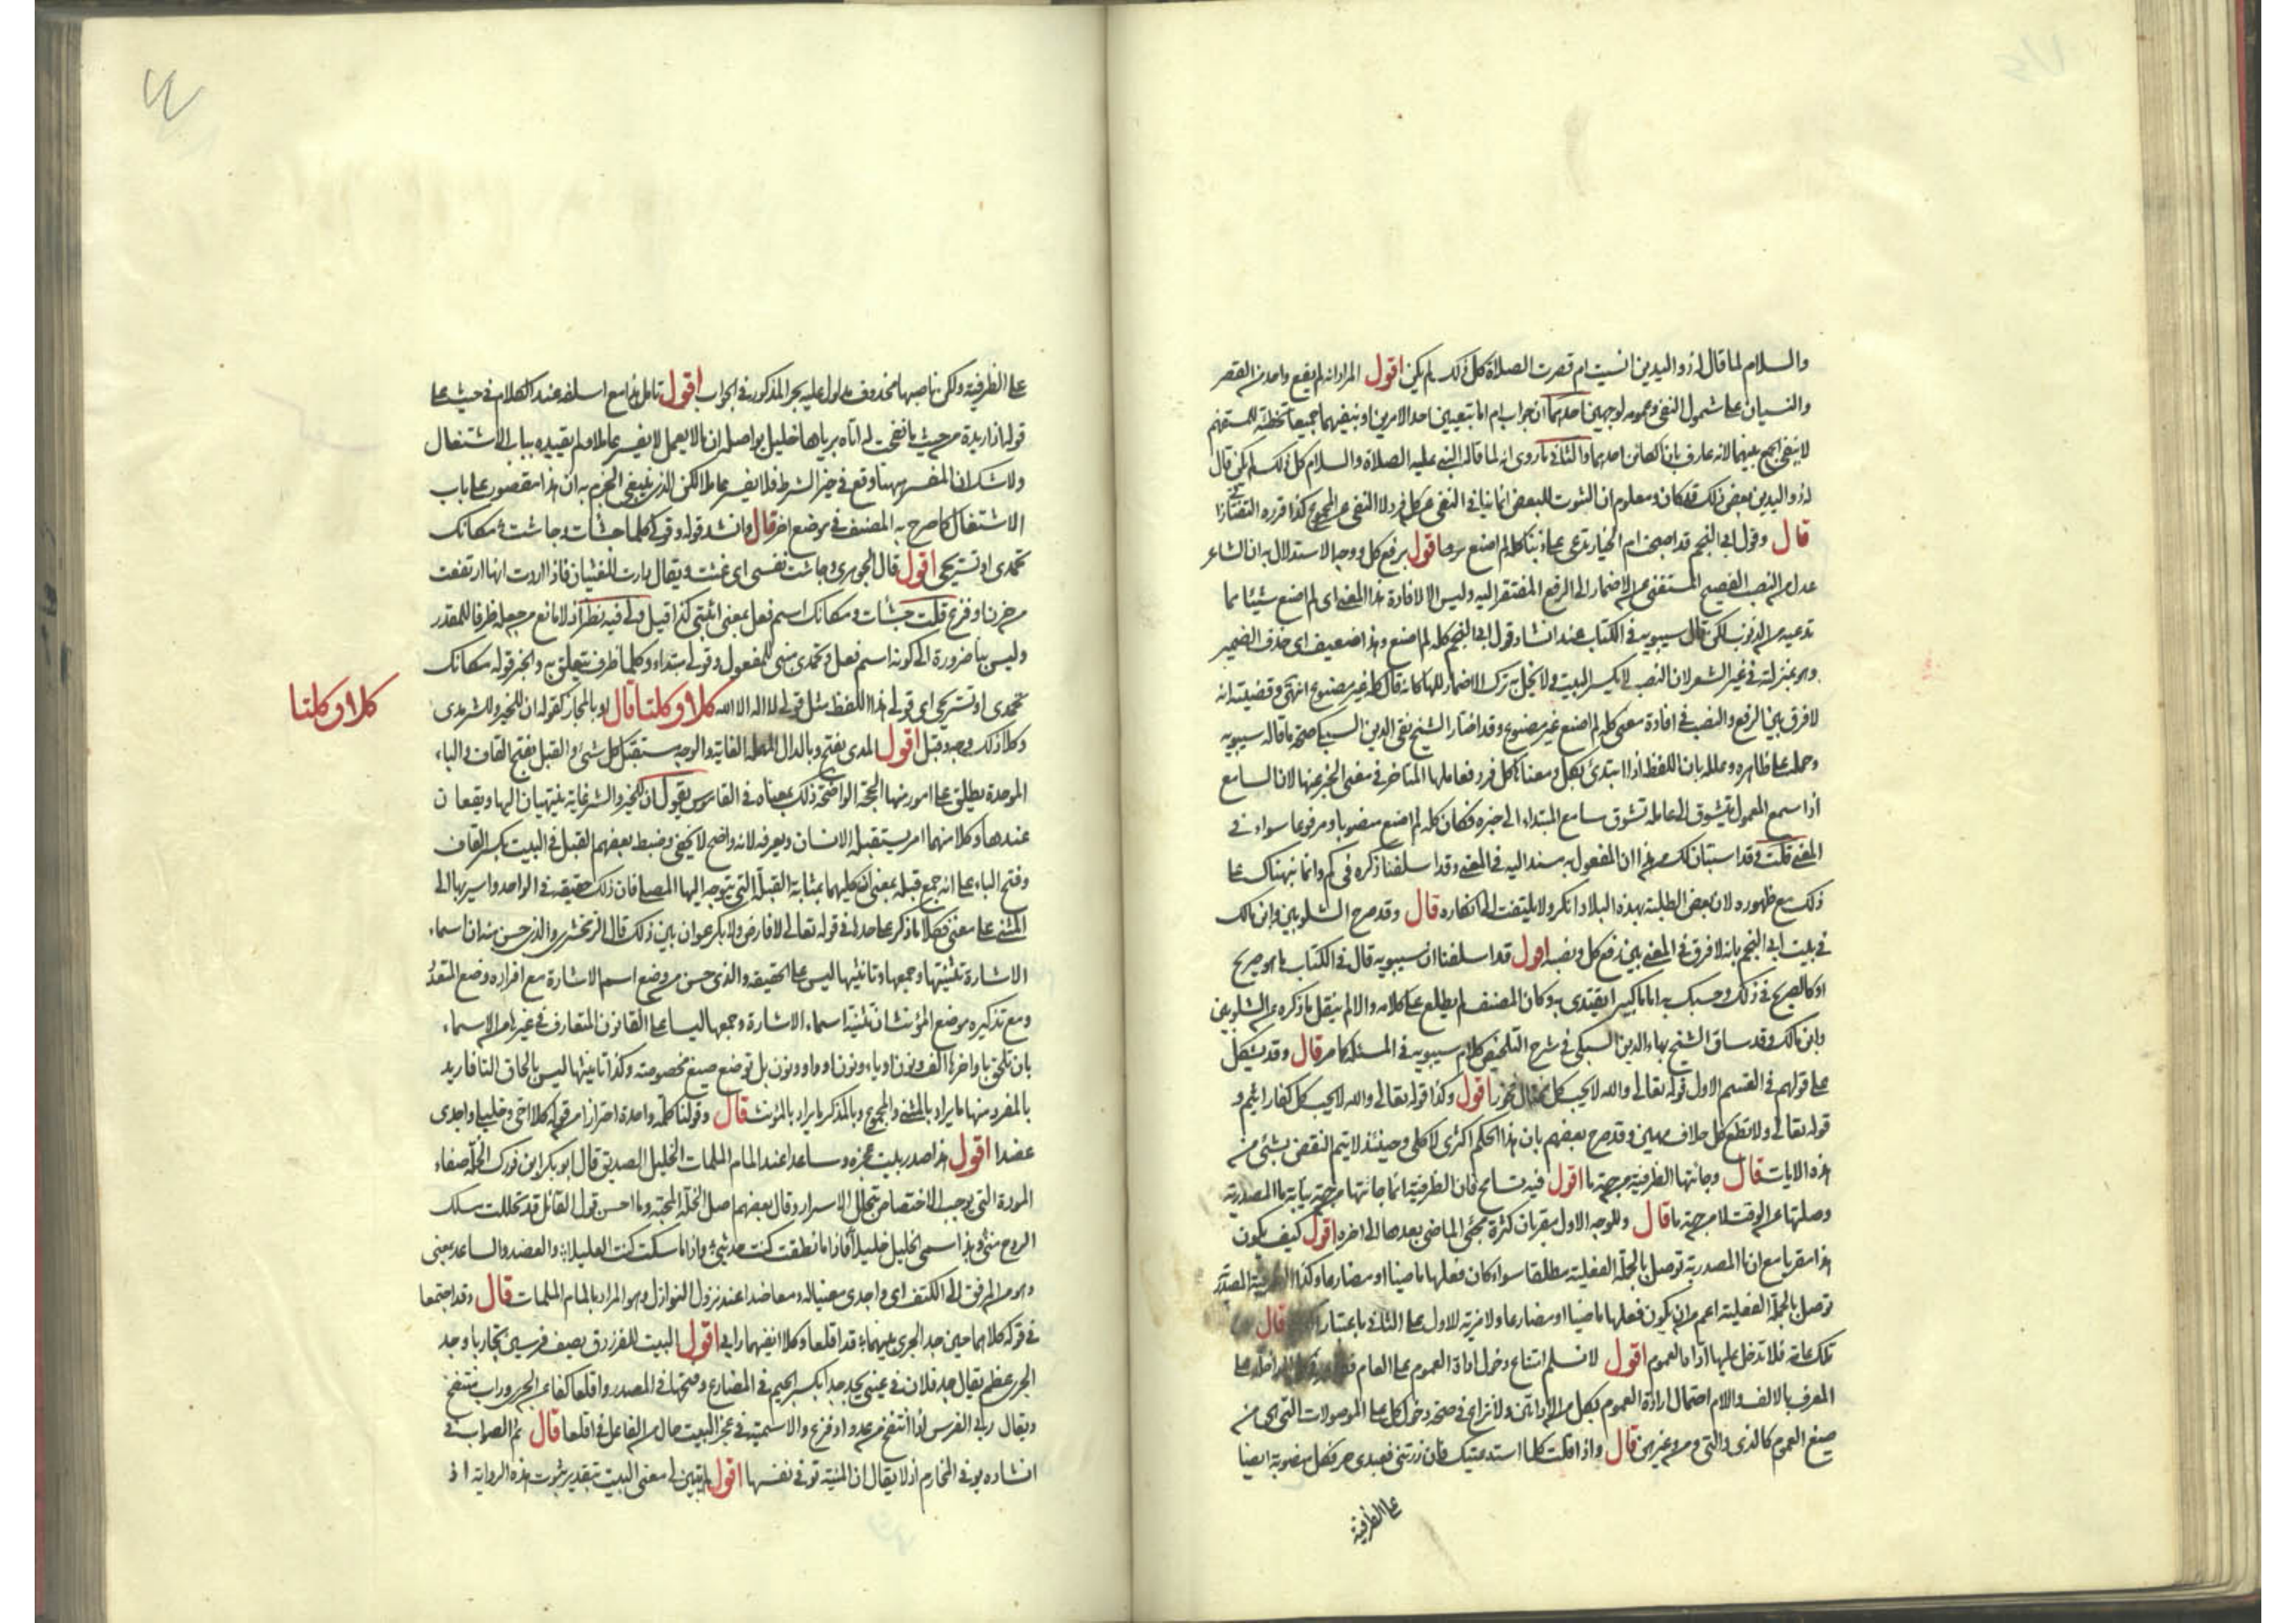 والسلام لما قال له ذو اليدين انسيت ام قصرت الصلاة كل ذلك لم يكن اقول المراد انه لم يقع واحد من القصر
والنسيان على شمول النفى وعمومه لوجهين احدهما ان جواب ام اما بتعيين احد الامرين او بنفيهما جميعا تخطئة للمستفهم
لا بنفى الجمع بينهما لانه عارف بان الكائن احدهما والثانى ما روى انه لما قال النبى عليه الصلاة والسلام كل ذلك لم يكن قال
له ذو اليدين بعض ذلك قد كان ومعلوم ان الثبوت للبعض انما ينافى النفى عن كل فرد لا النفى عن المجموع كذا قرره التفتازانى
قال وقول ابى النجم قد اصبحت ام الخيار تدعى على ذنبا كله لم اصنع اقول برفع كل ووجه الاستدلال به ان الشاعر
عدل عن النصب الفصيح المستغنى عن الاضمار الى الرفع المفتقر اليه وليس الا لافادة هذا المعنى اى لم اصنع شيئا مما
تدعيه من الذنوب لكن قال سيبويه فى الكتاب عند انشاد قول ابى النجم كله لم اصنع وهذا ضعيف اى حذف الضمير
وهو بمنزلته فى غير الشعر لان النصب لا يكسر البيت ولا يخل به ترك الاضمار للهاء كانه قال كله غير مصنوع انتهى وقضيته انه
لا فرق بين الرفع والنصب فى افادة معنى كله لم اصنع غير مصنوع وقد اختار الشيخ تقى الدين السبكى صحة ما قاله سيبويه
وحمله على ظاهره وعلله بان اللفظ اذا ابتدئ بكل ومعناه كل فرد فعاملها المتاخر فى معنى الخبر عنها لان السامع
اذا سمع المعمول يتشوق الى عامله تشوق سامع المبتداء الى خبره فكان كله لم اصنع منصوبا ومرفوعا سواء فى
المعنى قلت وقد استبان لك من هذا ان المفعول به مسند اليه فى المعنى وقد اسلفنا ذكره فى كم وانما نبهناك على
ذلك مع ظهوره لان بعض الطلبة بهذه البلاد انكر ولا يلتفت الى انكاره قال وقد صرح الشلوبين وابن مالك
فى بيت ابى النجم بانه لا فرق فى المعنى بين رفع كل ونصبه اقول قد اسلفنا ان سيبويه قال فى الكتاب ما هو صريح
او كالصريح فى ذلك وحسبك به اماما كبيرا يقتدى به وكان المصنف لم يطلع على كلامه والا لم ينقل ما ذكره عن الشلوبين
وابن مالك وقد ساق الشيخ بهاء الدين السبكى فى شرح التلخيص كلام سيبويه فى المسئلة كما مر قال وقد يشكل
على قولهم فى القسم الاول قوله تعالى والله لا يحب كل مختال فخور اقول وكذا قوله تعالى والله لا يحب كل كفار اثيم و
قوله تعالى ولا تطع كل حلاف مهين وقد صرح بعضهم بان هذا الحكم اكثرى لا كلى وحينئذ لا يتم النقض بشئ من
هذه الايات قال وجائتها الظرفية من جهة ما اقول فيه تسامح فان الظرفية انما جائتها من جهة نيابة ما المصدرية
وصلتها عن الوقت لا من جهة ما قال وللوجه الاول مقربان كثرة مجئ الماضى بعدها الى اخره اقول كيف يكون
هذا مقربا مع ان ما المصدرية توصل بالجملة الفعلية مطلقا سواء كان فعلها ماضيا او مضارعا وكذا
توصل بالجملة الفعلية اعم من ان يكون فعلها ماضيا او مضارعا ولا مزية للاول على الثانى باعتبار قال
تلك عامة فلا تدخل عليها اداة العموم اقول لا نسلم امتناع دخول اداة العموم على العام على
المعرف بالالف واللام احتمال ارادة العموم بكل من الاداتين ولا نزاع فى صحة دخول كل على الموصولات التى هى من
صيغ العموم كالذى والتى ومن وغيرهن قال واذا قلت كلما استدعيتك فان زرتنى فعبدى حر فكل منصوبة ايضا
على الظرفية
على الظرفية ولكن ناصبها محذوف مدلول عليه بحر المذكور فى الجواب اقول تامل هذا مع اسلفه عند الكلام فى حيث على
قوله اذا ريدة من حيث ما نفحت له اتاه برياها خليل يواصله ان ما لا يعمل لا يفسر عاملا ولم يقيده بباب الاشتغال
ولا شك ان المفسر ههنا وقع فى حيز الشرط فلا يفسر عاملا لكن الذى ينبغى الجزم به ان هذا مقصور على باب
الاشتغال كما صرح به المصنف فى موضع اخر قال وانشد قوله وقولى كلما جشأت وجاشت مكانك
تحمدى او تستريحى اقول قال الجوهرى وجاشت نفسى اى غثت ويقال دارت للغثيان فاذا اردت انها ارتفعت
من حزن او فزع قلت جشأت ومكانك اسم فعل بمعنى اثبتى كذا قيل ولى فيه نظر اذ لا مانع من جعله ظرفا للمقدر
وليس بنا ضرورة الى كونه اسم فعل وتحمدى مبنى للمفعول وقولى مبتداء وكلما ظرف يتعلق به والخبر قوله مكانك
تحمدى او تستريحى اى قولى هذا اللفظ مثل قولى لا اله الا الله كلا وكلتا قال او بالمجاز كقوله ان للخير وللشر مدى
وكلا ذلك وجه وقبل اقول المدى بفتح وبالدال المهملة الغاية والوجه مستقبل كل شئ والقبل بفتح القاف والباء
الموحدة يطلق على امور منها المحجة الواضحة ذلك بمعناه فى القاموس يقول ان للخير والشر غاية ينتهيان اليها ويقعان
عندها وكلا منهما امر يستقبله الانسان ويعرفه لانه واضح لا يخفى وضبط بعضهم القبل فى البيت بكسر القاف
وفتح الباء على انه جمع قبلة بمعنى ان كليهما بمثابة القبلة التى يتوجه اليها المصلى فان ذلك حقيقة فى الواحد واشير بها الى
المثنى على معنى وكلا ما ذكر على حدها فى قوله تعالى لا فارض ولا بكر عوان بين ذلك قال الزمخشرى والذى حسن منه ان اسماء
الاشارة تثنيتها وجمعها وتانيثها ليس على الحقيقة والذى حسن من وضع اسم الاشارة مع افراده وضع المتعدد
ومع تذكيره موضع المؤنث ان تثنية اسماء الاشارة وجمعها ليسا على القانون المتعارف فى غيرها من الاسماء
بان تلحق باواخرها الف ونون او ياء ونون او واو ونون بل توضع صيغ مخصوصة وكذا تانيثها ليس بالحاق التا فاريد
بالمفرد منها ما يراد بالمثنى والمجموع وبالمذكر ما يراد بالمؤنث قال وقولنا كلمة واحدة احترازا من قوله كلا اخى وخليلى واجدى
عضدا اقول هذا صدر بيت عجزه وساعدا عند المام الملمات الخليل الصديق قال ابو بكر ابن فورك الخلة صفاء
المودة التى توجب الاختصاص بتخلل الاسرار وقال بعضهم اصل الخلة المحبة وما احسن قول القائل قد تخللت مسلك
الروح منى وبذا سمى الخليل خليلا فاذا ما نطقت كنت حديثى واذا ما سكت كنت الغليلا والعضد والساعد بمعنى
وهو من المرفق الى الكتف اى واجدى معينا له ومعاضدا عند نزول النوازل وهو المراد بالمام الملمات قال وقد اجتمعا
فى قوله كلاهما حين جد الجرى بينهما قد اقلعا وكلا انفيهما رابى اقول البيت للفرزدق يصف فرسين تجاريا وجد
الجرى عظم يقال جد فلان فى عينى يجد جدا بكسر الجيم فى المضارع وفتحها فى المصدر واقلعا كفا عن الجرى وراب منتفخ
ويقال ربى الفرس اذا انتفخ من عدو او فزع والاسمية فى عجز البيت حال من الفاعل فى اقلعا قال ثم الصواب فى
انشاده يوفى المخارم اذ لا يقال ان المنية توفى نفسها اقول لم يتبين لى معنى البيت بتقدير ثبوت هذه الرواية اذ
كلا وكلتا